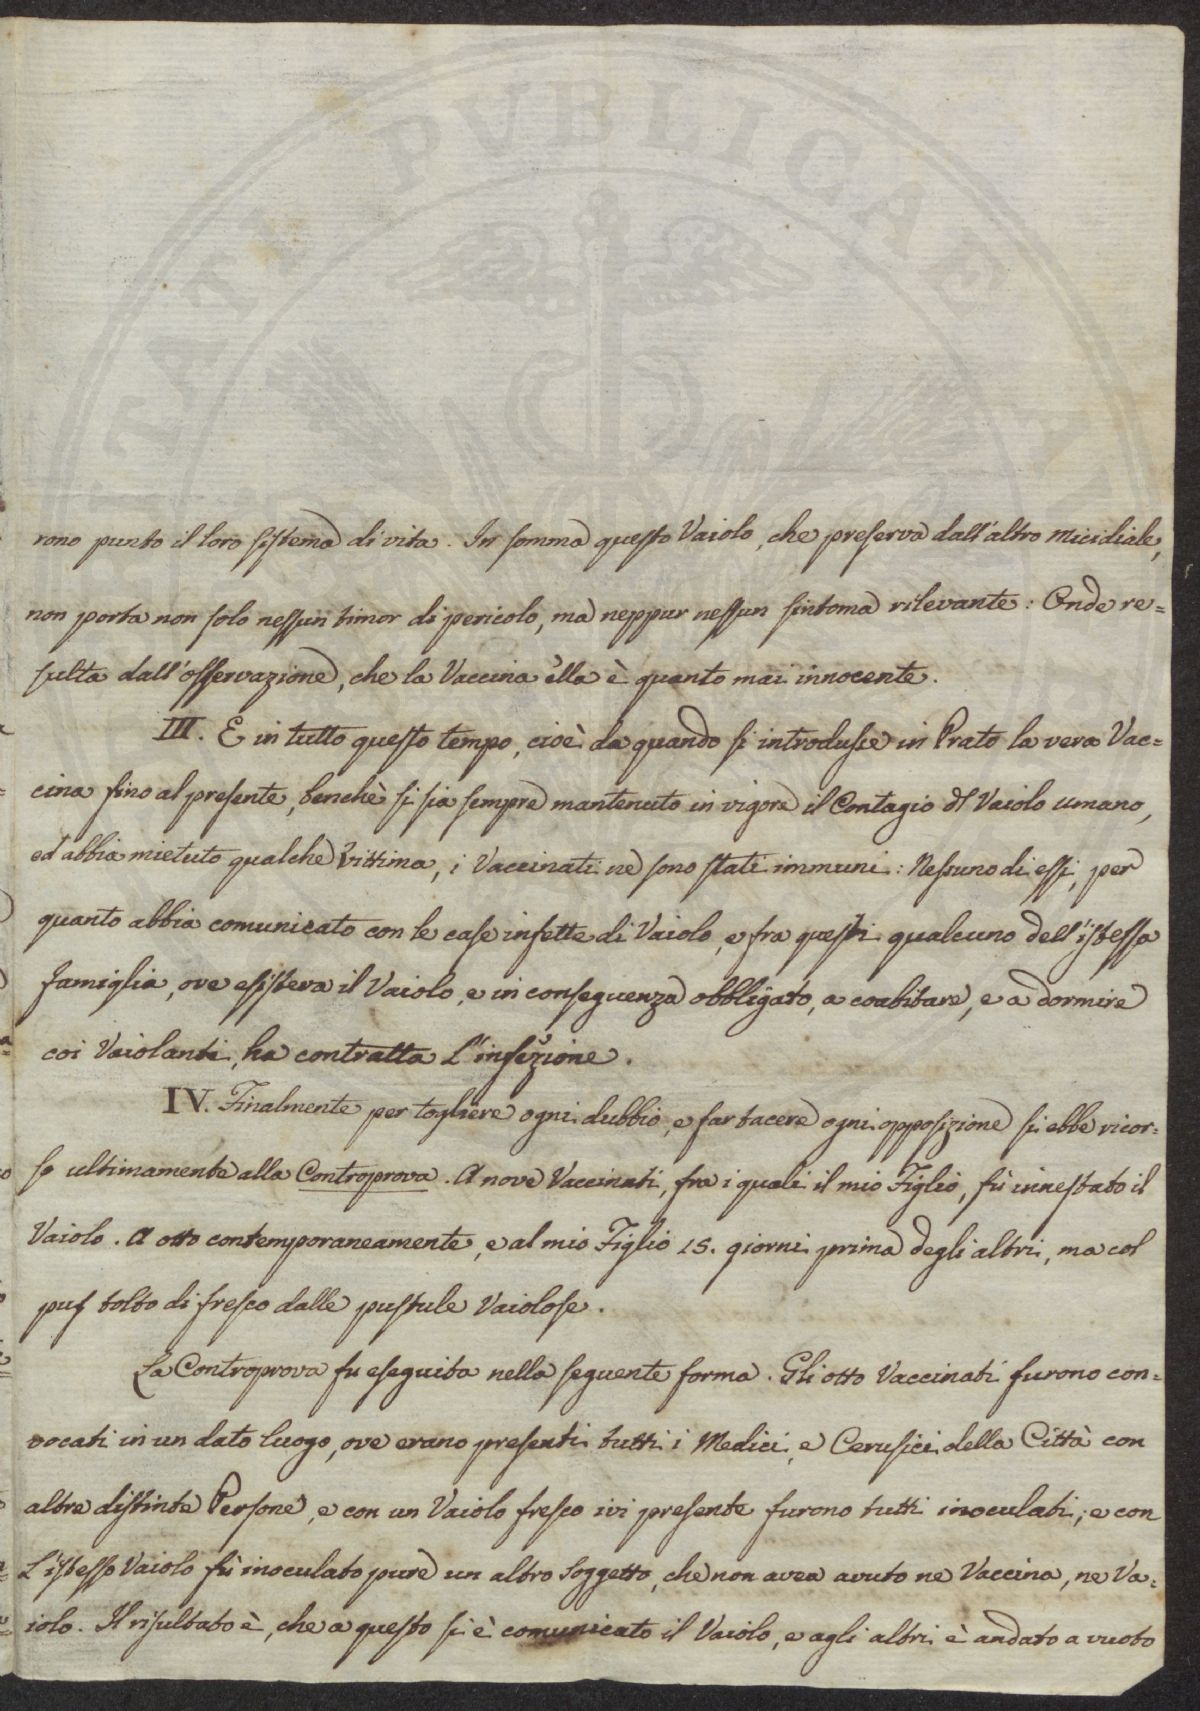 rono punto il loro sistema di vita. In somma questo Vaiolo, che preserva dall'altro micidiale,
non porta non solo nessun timor di pericolo, ma neppur nessun sintoma rilevante: Onde re=
sulta dall'osservazione, che la Vaccina ella è quanto mai innocente.
III. E in tutto questo tempo, cioè da quando si introdusse in Prato la vera Vac=
cina fino al presente, benchè si sia sempre mantenuto in vigore il Contagio del Vaiolo umano,
ed abbia mietuto qualche Vittima, i Vaccinati ne sono stati immuni: Nessuno di essi, per
quanto abbia comunicato con le case infette di Vaiolo, e fra questi qualcuno dell'istessa
famiglia, ove esisteva il Vaiolo, e in conseguenza obbligato, a coabitare, e a dormire
coi Vaiolanti, ha contratta l'infezione.
IV. Finalmente per togliere ogni dubbio, e far tacere ogni opposizione si ebbe ricor=
so ultimamente alla Controprova. A nove Vaccinati, fra i quali il mio Figlio, fù innestato il
Vaiolo. A otto contemporaneamente, e al mio Figlio 15. giorni prima degli altri, ma col
pus tolto di fresco dalle pustule Vaiolose.
La Controprova fu eseguita nella seguente forma. Gli otto Vaccinati furono con=
vocati in un dato luogo, ove erano presenti tutti i Medici, e Cerusici della Città con
altre distinte Persone, e con un Vaiolo fresco ivi presente furono tutti inoculati; e con
l'istesso Vaiolo fù inoculato pure un altro soggetto, che non avea avuto ne Vaccina, ne Va=
iolo. Il risultato è, che a questo si è comunicato il Vaiolo, e agli altri è andato a vuoto